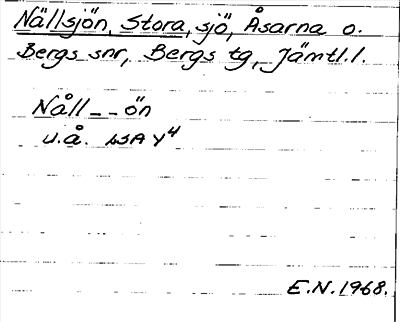 Nällsjön, Stora, sjö, Åsarna o.
Bergs snr, Bergs tg, Jämtl.l.
Nåll--ön
u.å. LSA Y4
E.N. 1968.